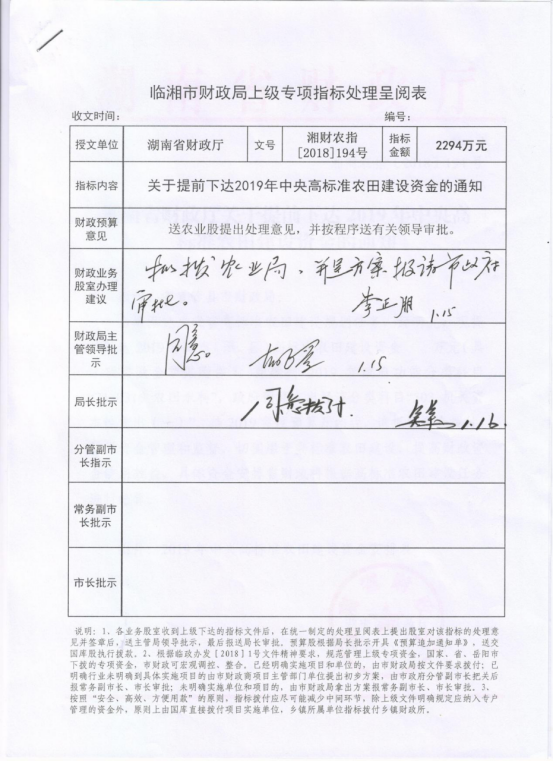 临湘市财政局上级专项指标处理呈阅表
收文时间： 编号：
授文单位 湖南省财政厅 文号 湘财农指[2018]194号 指标金额 2294万元
指标内容 关于提前下达2019年中央高标准农田建设资金的通知
财政预算意见 送农业股提出处理意见，并按程序送有关领导审批。
财政业务股室办理建议
拟拨农业局，并呈方案报请市政府
审批。 李正朋 1.15
财政局主管领导批示 同意。 1.15
局长批示 同意拨付. 1.16.
分管副市长指示
常务副市长批示
市长批示
说明：1、各业务股室收到上级下达的指标文件后，在统一制定的处理呈阅表上提出股室对该指标的处理意
见并签章后，送主管局领导批示，最后报送局长审批，预算股根据局长批示开具《预算追加通知单》，送交
国库股执行拨款。2、根据临政办发［2018］1号文件精神要求，规范管理上级专项资金，国家、省、岳阳市
下拨的专项资金，市财政可宏观调控、整合，已经明确实施项目和单位的，由市财政局按文件要求拨付；已
明确行业未明确到具体实施项目的由市财政商项目主管部门单位提出初步方案，由市政府分管副市长把关后
报常务副市长、市长审批；未明确实施单位和项目的，由市财政局拿出方案报常务副市长、市长审批。3、
按照“安全、高效、方便用款”的原则，指标拨付应尽可能减少中间环节，除上级文件明确规定应纳入专户
管理的资金外，原则上由国库直接拨付项目实施单位，乡镇所属单位指标拨付乡镇财政所。